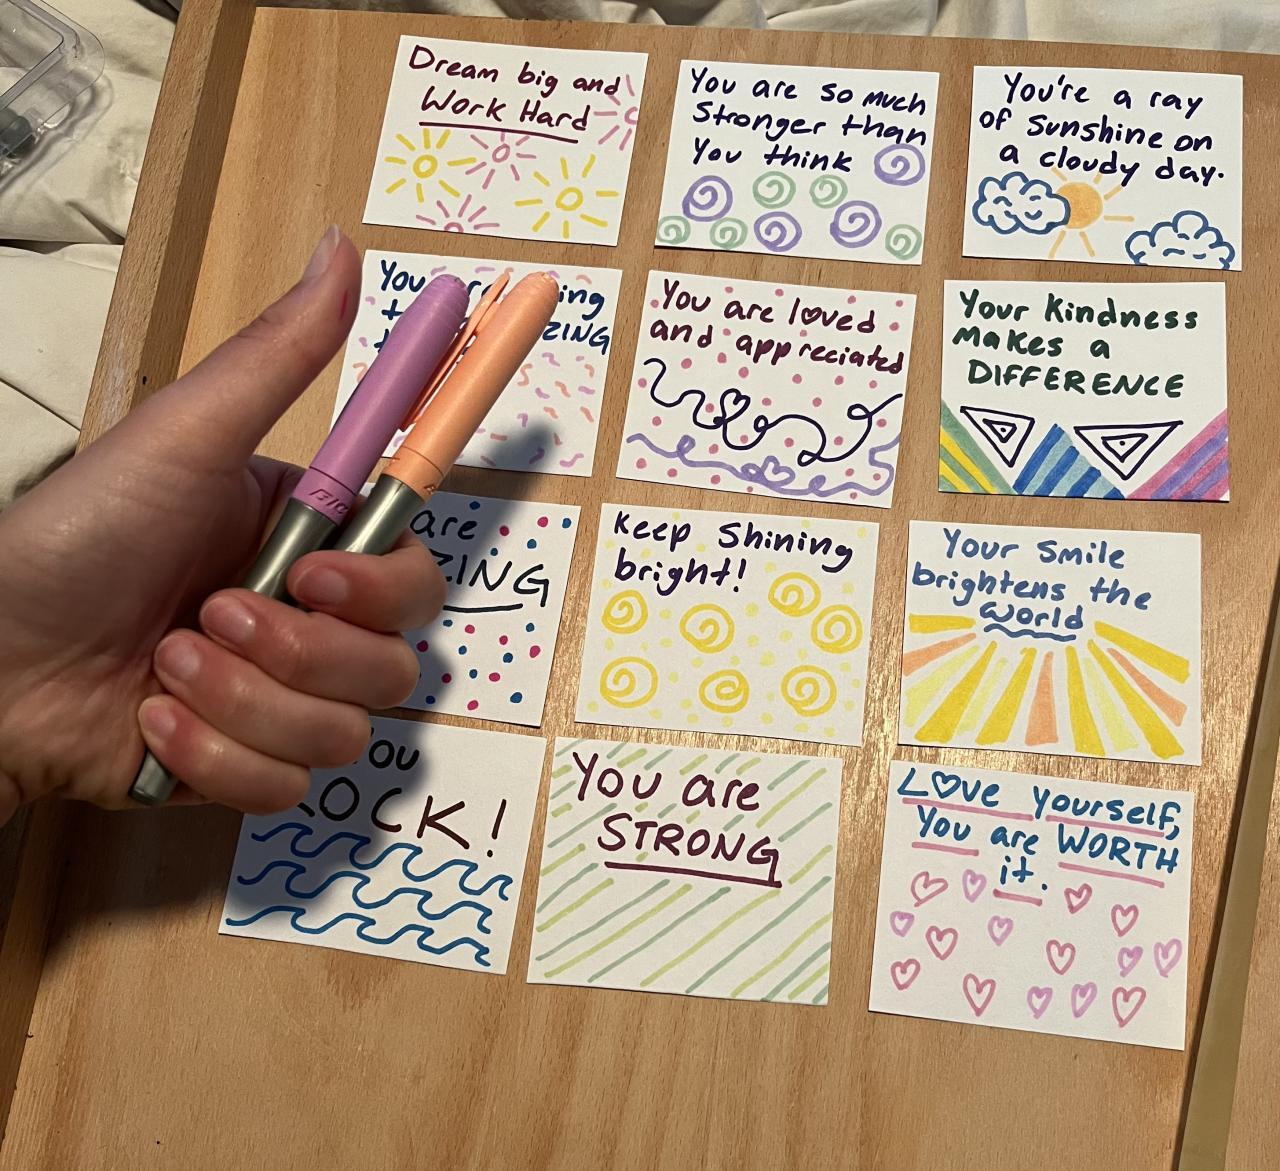 Dream big and
Work Hard
You are so much
Stronger than
You think
You're a ray
of Sunshine on
a cloudy day.
You
AZING
You are loved
and appreciated
Your Kindness
Makes a
DIFFERENCE
are
ZING
Keep Shining
bright!
Your Smile
brightens the
world
You
ROCK!
You are
STRONG
Love yourself,
You are WORTH
it.
BIC